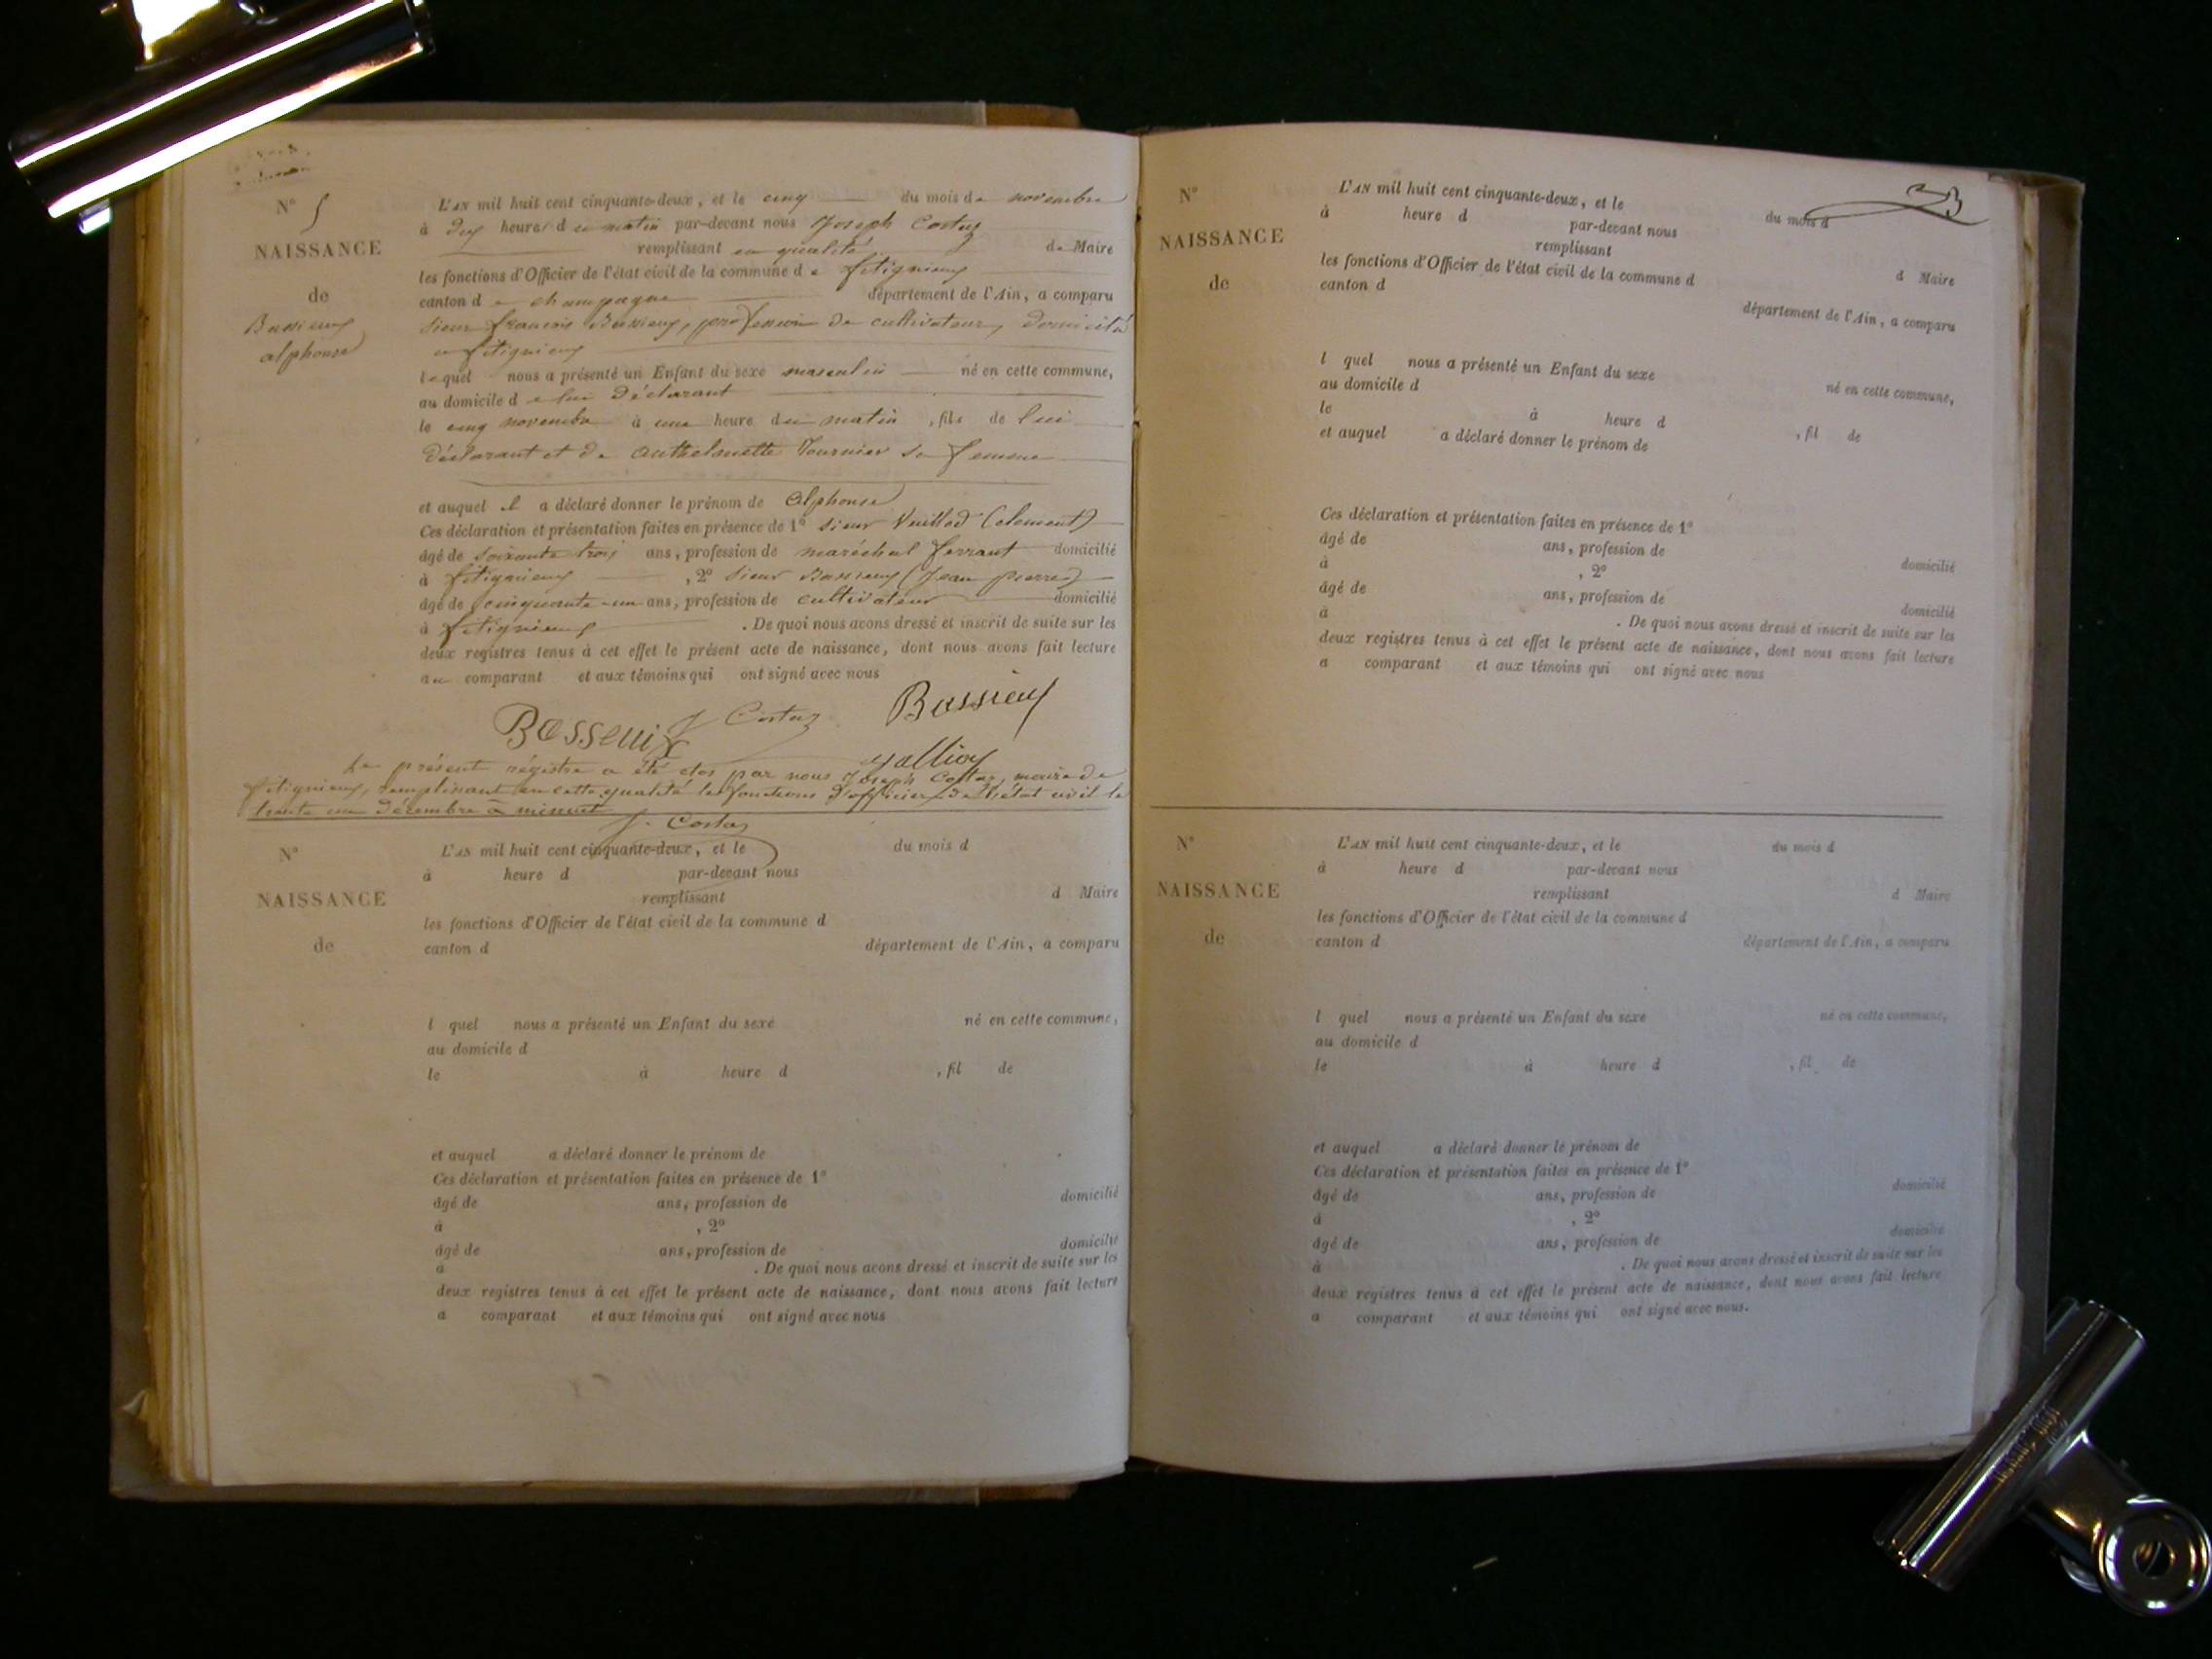 N° 5
NAISSANCE
de
Bussieux
alphonse
L'AN mil huit cent cinquante-deux, et le cinq du mois de novembre
à dix heures du matin par-devant nous Joseph Costaz
remplissant en qualité de Maire
les fonctions d'Officier de l'état civil de la commune de fitignieux
canton de champagne département de l'Ain, a comparu
sieur francois Bussieux, profession de cultivateur, domicilié
a fitignieux
lequel nous a présenté un Enfant du sexe masculin né en cette commune,
au domicile de lui Déclarant
le cinq novembre à une heure du matin, fils de lui
déclarant et de Anthelmette Tournier sa femme
et auquel il a déclaré donner le prénom de Alphonse
Ces déclaration et présentation faites en présence de 1° sieur (clement)
âgé de soixante trois ans, profession de maréchal ferrant domicilié
à fitignieux, 2° sieur Bussieux (Jean pierre)
âgé de cinquante-un ans, profession de cultivateur domicilié
à fitignieux. De quoi nous avons dressé et inscrit de suite sur les
deux registres tenus à cet effet le présent acte de naissance, dont nous avons fait lecture
au comparant et aux témoins qui ont signé avec nous
J Costaz Bussieux
Le présent régistre a été clos par nous Joseph Costaz, maire de
fitignieux, remplissant en cette qualité les fonctions d'officier de l'état civil le
trente un décembre à minuit
J. Costaz
N°
NAISSANCE
de
L'AN mil huit cent cinquante-deux, et le du mois d
à heure d par-devant nous
remplissant d Maire
les fonctions d'Officier de l'état civil de la commune d
canton d département de l'Ain, a comparu
l quel nous a présenté un Enfant du sexe né en cette commune,
au domicile d
le à heure d , fil de
et auquel a déclaré donner le prénom de
Ces déclaration et présentation faites en présence de 1°
âgé de ans, profession de domicilié
à , 2°
âgé de ans, profession de domicilié
à . De quoi nous avons dressé et inscrit de suite sur les
deux registres tenus à cet effet le présent acte de naissance, dont nous avons fait lecture
a comparant et aux témoins qui ont signé avec nous
N°
NAISSANCE
de
L'AN mil huit cent cinquante-deux, et le du mois d
à heure d par-devant nous
remplissant d Maire
les fonctions d'Officier de l'état civil de la commune d
canton d département de l'Ain, a comparu
l quel nous a présenté un Enfant du sexe né en cette commune,
au domicile d
le à heure d , fil de
et auquel a déclaré donner le prénom de
Ces déclaration et présentation faites en présence de 1°
âgé de ans, profession de domicilié
à , 2°
âgé de ans, profession de domicilié
à . De quoi nous avons dressé et inscrit de suite sur les
deux registres tenus à cet effet le présent acte de naissance, dont nous avons fait lecture
a comparant et aux témoins qui ont signé avec nous
N°
NAISSANCE
de
L'AN mil huit cent cinquante-deux, et le du mois d
à heure d par-devant nous
remplissant d Maire
les fonctions d'Officier de l'état civil de la commune d
canton d département de l'Ain, a comparu
l quel nous a présenté un Enfant du sexe né en cette commune,
au domicile d
le à heure d , fil de
et auquel a déclaré donner le prénom de
Ces déclaration et présentation faites en présence de 1°
âgé de ans, profession de domicilié
à , 2°
âgé de ans, profession de domicilié
à . De quoi nous avons dressé et inscrit de suite sur les
deux registres tenus à cet effet le présent acte de naissance, dont nous avons fait lecture
a comparant et aux témoins qui ont signé avec nous.